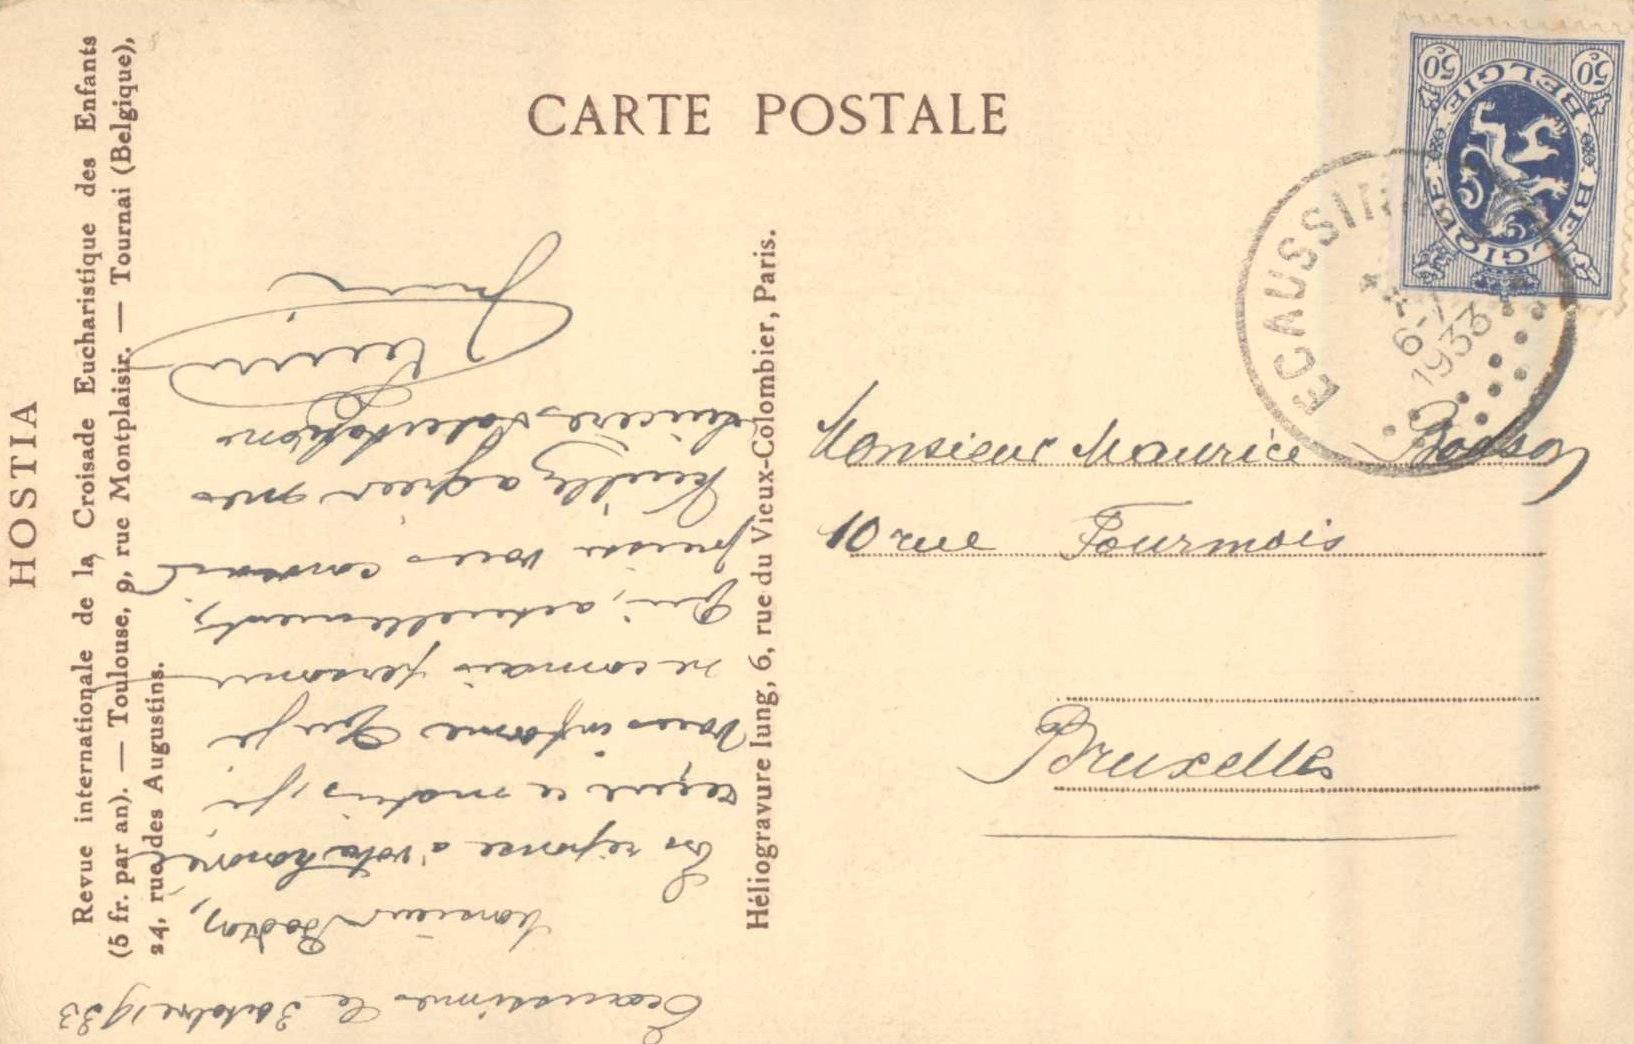 CARTE POSTALE
50 50
BELGIE BELGIE
BELGIQUE
ECAUSSIN
1933
HOSTIA
Revue internationale de la Croisade Eucharistique des Enfants
(5 fr. par an). — Toulouse, 9, rue Montplaisir. — Tournai (Belgique),
24, rue des Augustins.
Héliogravure Iung, 6, rue du Vieux-Colombier, Paris.
Monsieur Maurice
10 rue Fourmois
Bruxelles
Ecaussinnes le 3 octobre 1933
Monsieur
En réponse à votre honorée
reçue ce matin, je
vous informe que je
ne connais personne
qui, actuellement,
puisse vous convenir.
Veuillez agréer mes
sincères salutations